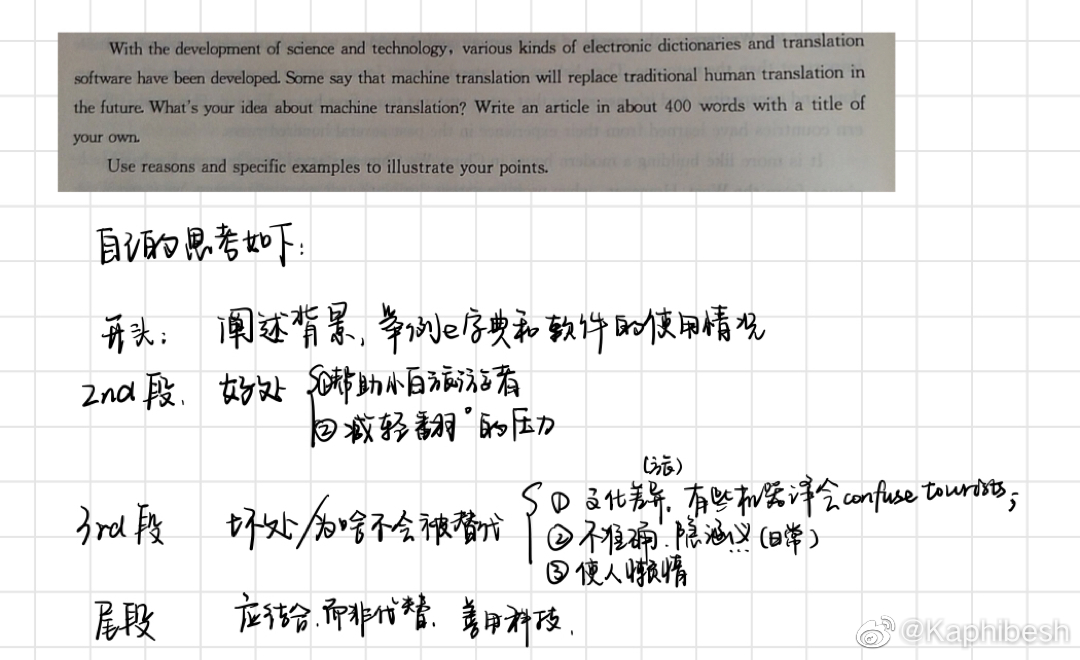 With the development of science and technology, various kinds of electronic dictionaries and translation
software have been developed. Some say that machine translation will replace traditional human translation in
the future. What's your idea about machine translation? Write an article in about 400 words with a title of
your own.
Use reasons and specific examples to illustrate your points.
自己的思考如下:
开头: 阐述背景, 举例e字典和软件的使用情况
2nd 段. 好处 ①帮助小白旅游者
②减轻翻°的压力
(旅)
3rd 段 坏处/为啥不会被替代 ① 文化差异, 有些机器译会confuse tourists;
② 不准确. 隐涵义 (日常)
③ 使人懒惰
尾段 应结合.而非代替. 善用科技.
@Kaphibesh